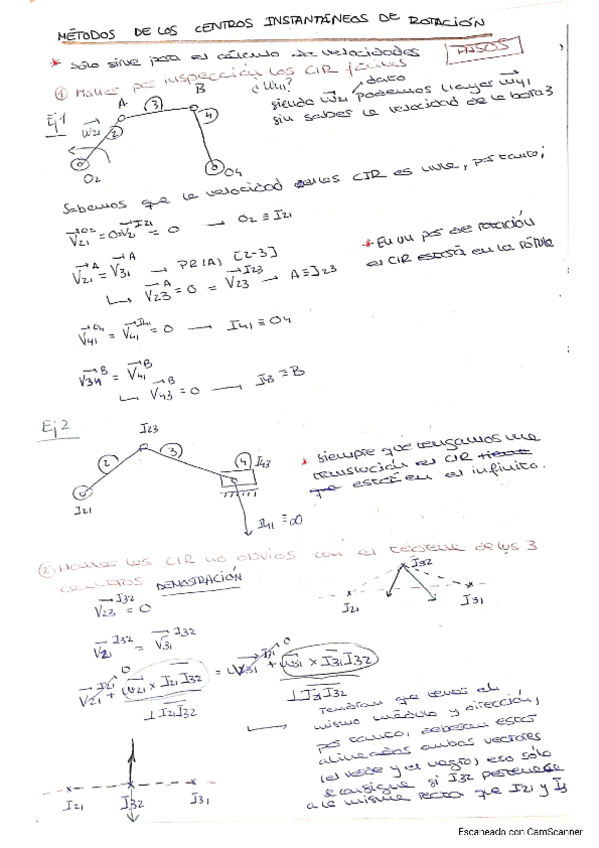 MÉTODOS DE LOS CENTROS INSTANTÁNEOS DE ROTACIÓN
* solo sirve para el cálculo de velocidades
PASOS
① Hallar por inspección los CIR fáciles
Ej 1
A
B
③
④
②
ω21
O2
O4
¿ω41?
dato
siendo ω21 podemos llegar ω41
sin saber la velocidad de la barra 3
Sabemos que la velocidad en los CIR es nula, por tanto;
V21^O2 = 0 = V21^I21 = 0 → O2 ≡ I21
V21^A = V31^A → PR(A) [2-3]
↳ V23^A = 0 = V23^I23 → A ≡ I23
* En un par de rotación
el CIR estará en la rótula
V41^O4 = V41^I41 = 0 → I41 ≡ O4
V31^B = V41^B
↳ V43^B = 0 → I43 ≡ B
Ej 2
I23
②
③
④
I43
I21
I41 ≡ ∞
* siempre que tengamos una
translución el CIR
que estará en el infinito.
② Hallar los CIR no obvios con el teorema de los 3
centros DEMOSTRACIÓN
I32
I21
I31
V23^I32 = 0
V21^I32 = V31^I32
V21^I21 + ω21 x I21I32 = V31^I31 + ω31 x I31I32
0
0
⊥ I21I32
⊥ I31I32
Tendrán que tener el
mismo módulo y dirección,
por tanto, deberán estar
alineados ambos vectores
(el verde y el negro) eso sólo
se consigue si I32 pertenece
a la misma recta que I21 y I3
I21
I32
I31
Escaneado con CamScanner